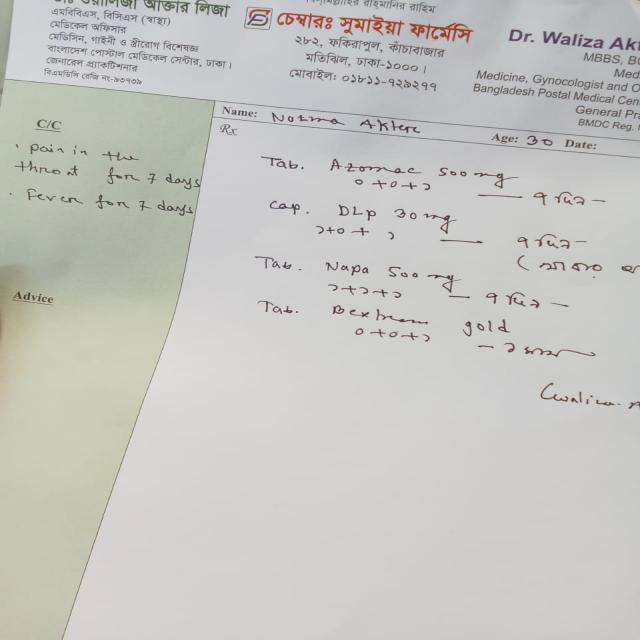 ডাঃ ওয়ালিজা আক্তার লিজা
এমবিবিএস, বিসিএস (স্বাস্থ্য)
মেডিকেল অফিসার
মেডিসিন, গাইনী ও স্ত্রীরোগ বিশেষজ্ঞ
বাংলাদেশ পোস্টাল মেডিকেল সেন্টার, ঢাকা।
জেনারেল প্র্যাকটিশনার
বিএমডিসি রেজি নং-৯৩৭৩৯
বিসমিল্লাহির রাহমানির রাহিম
চেম্বারঃ সুমাইয়া ফার্মেসি
২৮২, ফকিরাপুল, কাঁচাবাজার
মতিঝিল, ঢাকা-১০০০।
মোবাইল: ০১৮১১-৭২৯২৭৭
Dr. Waliza Akt
MBBS, BC
Med
Medicine, Gynocologist and O
Bangladesh Postal Medical Cen
General Pra
BMDC Reg.
Name: Notma Akter Age: 30 Date:
C/C
• pain in the
throat for 7 days
• Fever for 7 days
Advice
Rx
Tab. Azomac 500 mg
০+০+১ — ৭ দিন —
Cap. DLP 30 mg
১+০+১ — ৭ দিন —
Tab. Napa 500 mg
১+১+১ — ৭ দিন —
Tab. Bextram gold
০+০+১ — ১ মাস
Waliza. A